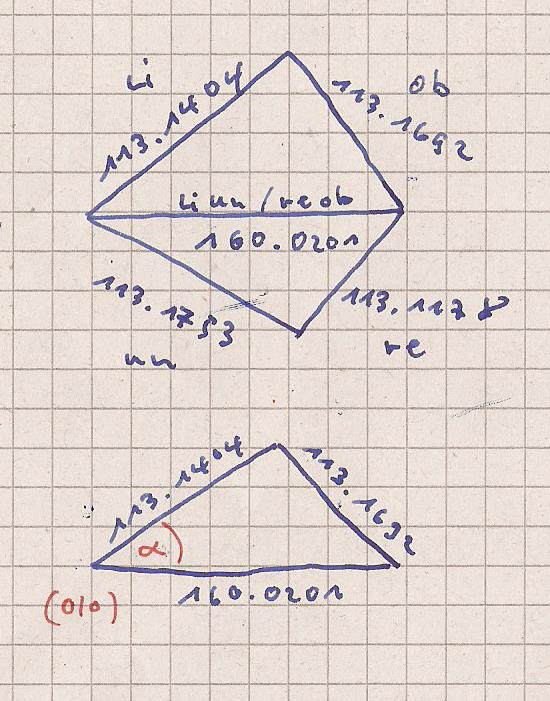 li
ob
113.1404
113.1692
li un / re ob
160.0201
113.1753
113.1178
un
re
113.1404
113.1692
α
(0|0)
160.0201